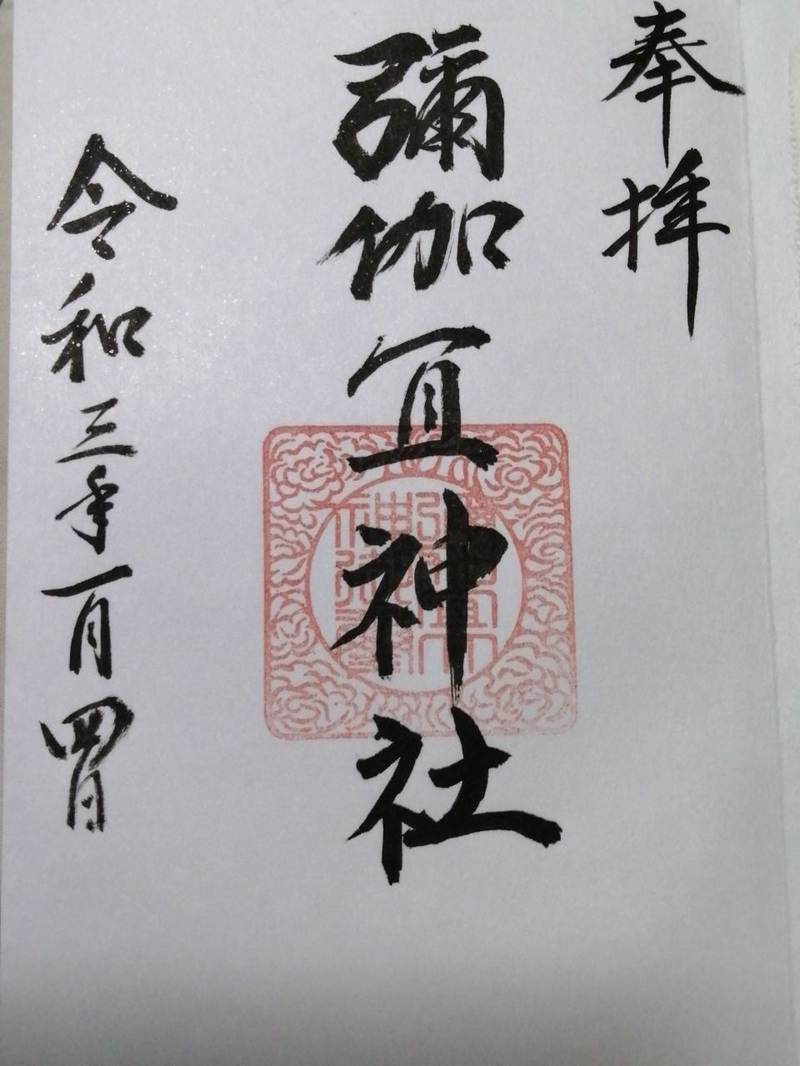 奉拝
彌伽宜神社
令和三年一月四日